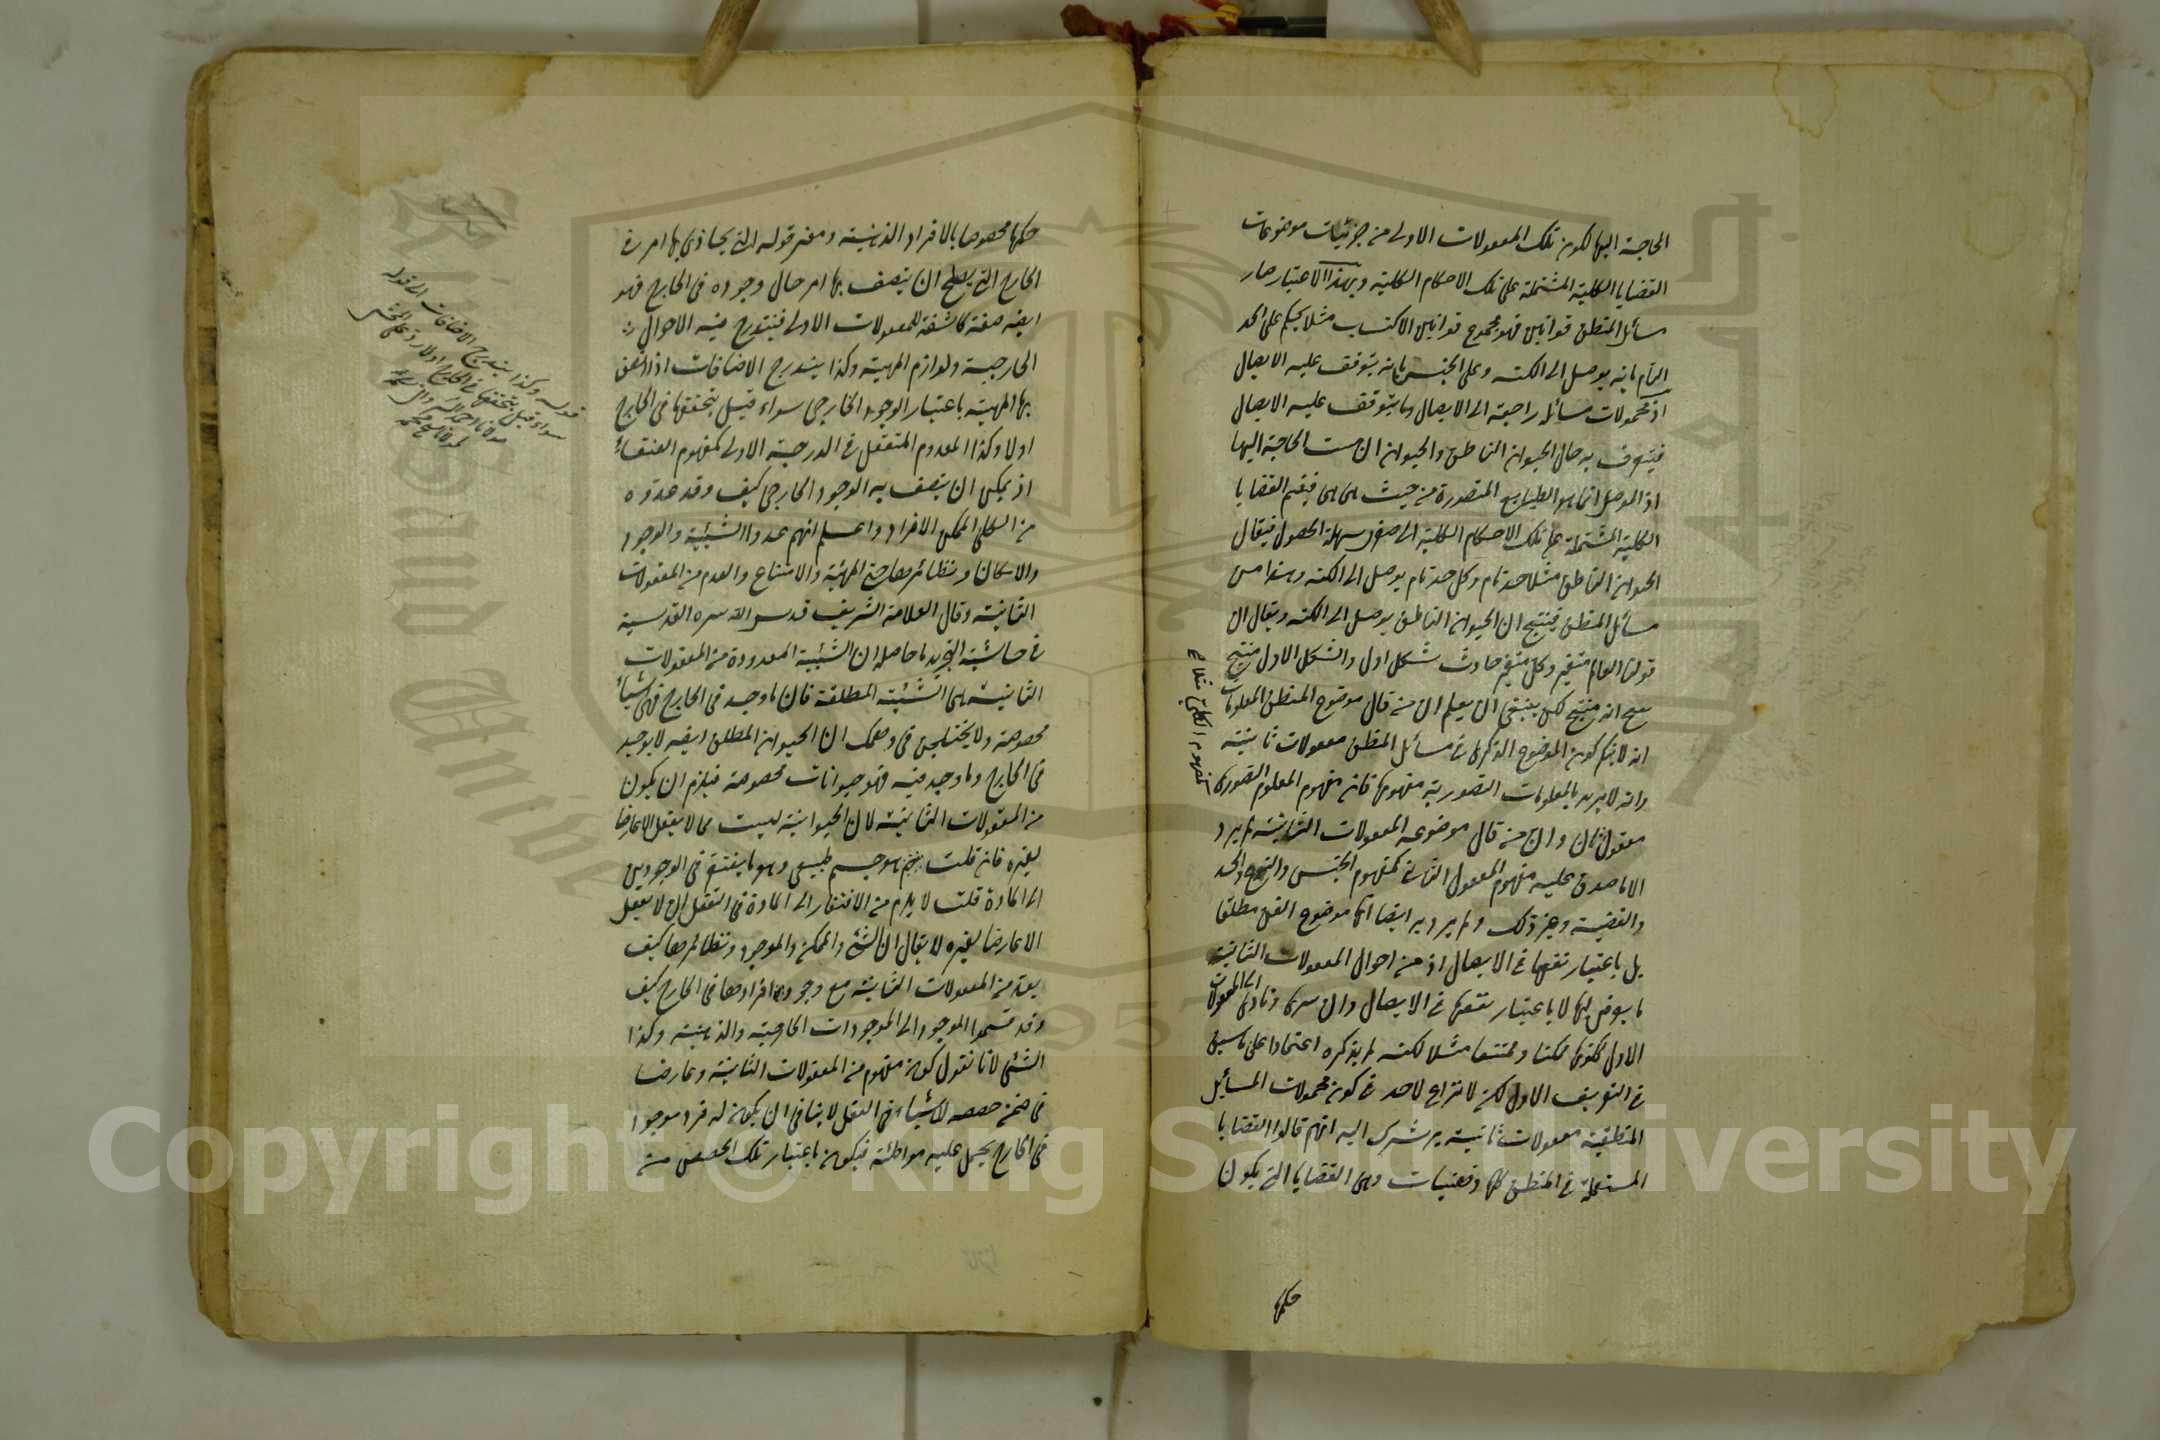 الحاجة اليها لكون تلك المعقولات الاولى من جزئيات موضوعات
القضايا الكلية المشتملة على تلك الاحكام الكلية وبهذا الاعتبار صار
مسائل المنطق قوانين فهو مجموع قوانين الاكتساب مثلا يحكم على الحد
التام بانه يوصل الى الكنه وعلى الجنس بانه يتوقف عليه الايصال
اذ محمولات مسائله راجعة الى الايصال وما يتوقف عليه الايصال
فيتعرف به حال الحيوان الناطق والحيوان ان مست الحاجة اليها
اذ الموصل انما هو الطبايع المتصورة من حيث هى هى فيضم القضايا
الكلية المشتملة على تلك الاحكام الكلية الى صغرى سهلة الحصول فيقال
الحيوان الناطق مثلا حد تام وكل حد تام يوصل الى الكنه وهذا من
مسائل المنطق فينتج ان الحيوان الناطق يوصل الى الكنه ويقال ان
قولنا العالم متغير وكل متغير حادث شكل اول والشكل الاول منتج
ينتج انه منتج لكن ينبغى ان يعلم ان من قال موضوع المنطق المعلومات
انه لا يتم كون الموضوع الذكرى فى مسائل المنطق معقولات ثانية
وانه لا يريد بالمعلومات التصورية مفهومها فان مفهوم المعلوم التصورى
معقول ثان وان من قال موضوعه المعقولات الثانية لم يرد
الا ما صدق عليه مفهوم المعقول الثانى كمفهوم الجنس والنوع والحد
والقضية وغير ذلك ولم يرد به ايضا انها موضوع الفن مطلقا
بل باعتبار نفعها فى الايصال اذ من احوال المعقولات الثانية
ما يعرض لها لا باعتبار نفعها فى الايصال وان سرى وتادى الى المعقولات
الاول ككونها ممكنا وممتنعا مثلا لكنه لم يذكره اعتمادا على ما سبق
فى التعريف الاول لكن لا نزاع لاحد فى كون محمولات المسائل
المنطقية معقولات ثانية يرشدك اليه انهم قالوا القضايا
المستعملة فى المنطق كلها ذهنيات وهى القضايا التى يكون
حكمها
المفهوم الكلى مثلا
حكمها مخصوصا بالافراد الذهنية ومعنى قوله التى يحاذى بها امر فى
الخارج التى يصلح ان يتصف بها امر حال وجوده فى الخارج فهو
ايضه صفة كاشفة للمعقولات الاولى فيندرج فيه الاحوال
الخارجية ولوازم المهية وكذا يندرج الاضافات اذا اتصف
بها المهية باعتبار الوجود الخارجى سواء قيل بتحققها فى الخارج
اولا وكذا المعدوم المتعقل فى الدرجة الاولى كمفهوم العنقاء
اذ يمكن ان يتصف به الوجود الخارجى كيف وقد عدوه
من الكلى الممكن الافراد واعلم انهم عدوا الشيئية والوجود
والامكان ونظائرها حتى المهية والامتناع والعدم من المعقولات
الثانية وقال العلامة الشريف قدس الله سره القدسية
فى حاشية التجريد ما حاصله ان الشيئية المعدودة من المعقولات
الثانية هى الشيئية المطلقة فان ما وجد فى الخارج فهى شياء
مخصوصة ولا يختلجن فى وهمك ان الحيوان المطلق ايضه لا يوجد
فى الخارج وما وجد فيه فهو حيوانات مخصوصة فيلزم ان يكون
من المعقولات الثانية لان الحيوانية ليست مما لا يعقل الا عارضا
لغيره فان قلت هو جسم طبيعى وهو ما يفتقر فى الوجودين
الى المادة قلت لا يلزم من الافتقار الى المادة فى التعقل ان لا يعقل
الا عارضا لغيره لا يقال ان الشئ والممكن والموجود ونظائرها كيف
يعد من المعقولات الثانية مع وجود افرادها فى الخارج كيف
وقد قسموا الموجود الى الموجودات الخارجية والذهنية وكذا
الشئ لانا نقول كون مفهوم من المعقولات الثانية وعارضا
فى ضمن حصصه لاشياء فى العقل لا ينافى ان يكون له فرد موجود
فى الخارج يحمل عليه مواطئة فيكون باعتبار تلك الحصص من
قوله وكذا يندرج الاضافات الى قوله
سواء قيل بتحققها فى الخارج اولا
Copyright © King Saud University
King Saud University
1957